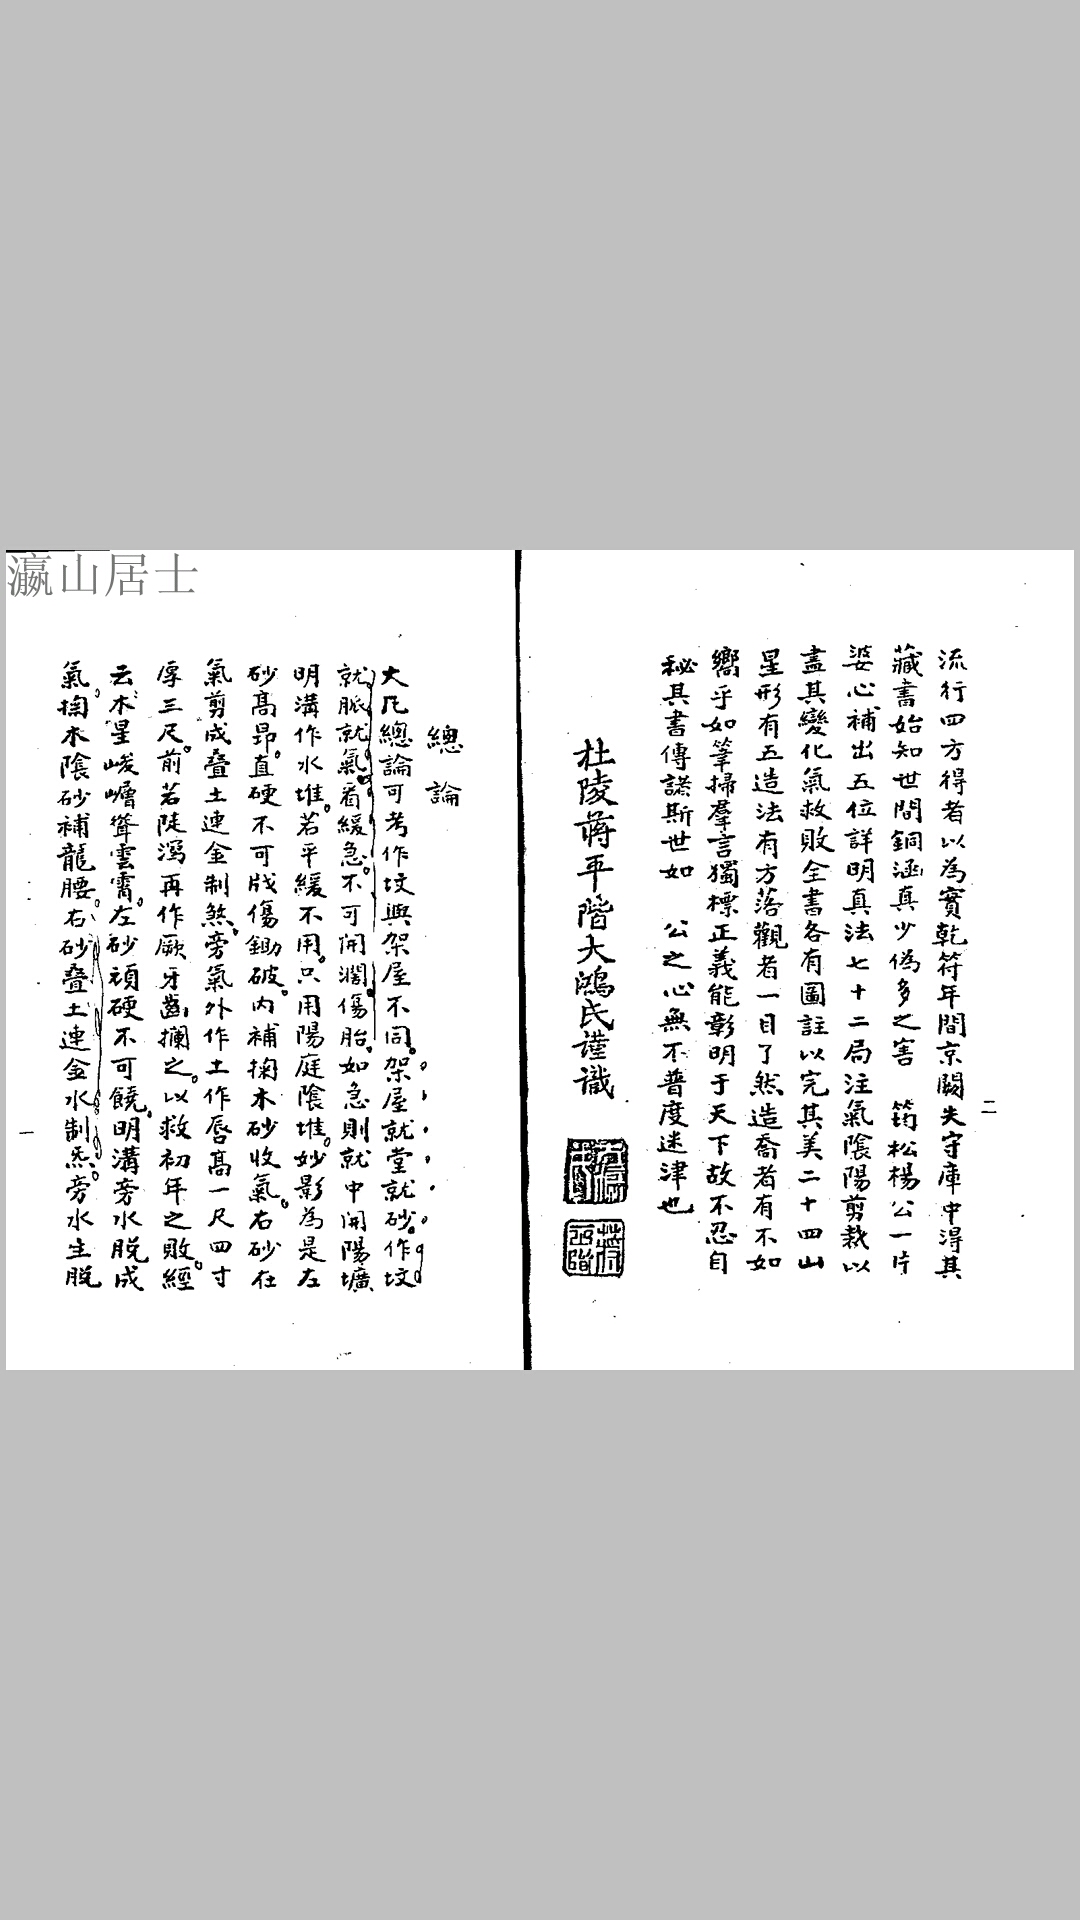 瀛山居士
二
流行四方得者以為寶乾符年間京闕失守庫中得其
藏書始知世間銅涵真少偽多之害　筠松楊公一片
婆心補出五位詳明真法七十二局注氣陰陽剪裁以
盡其變化氣救敗全書各有圖註以完其美二十四山
星形有五造法有方落觀者一目了然造喬者有不如
嚮乎如筆掃羣言獨標正義能彰明于天下故不忍自
秘其書傳諸斯世如　公之心無不普度迷津也
杜陵蔣平階大鴻氏謹識
總論
大凡總論可考作坟與架屋不同。架屋就堂就砂。作坟
就脈就氣。看緩急。不可開濶傷胎。如急則就中開陽壙
明溝作水堆。若平緩不用。只用陽庭陰堆。妙影為是左
砂高昂。直硬不可戕傷鋤破。內補掬木砂收氣。右砂在
氣剪成叠土連金制煞。旁氣外作土作唇高一尺四寸
厚三尺。前若陡瀉再作厥牙齒攔之。以救初年之敗。經
云木星峻嶒聳雲霄。左砂頑硬不可饒。明溝旁水脱成
氣。掬木陰砂補龍腰。右砂叠土連金水制炁。旁水生脱
一